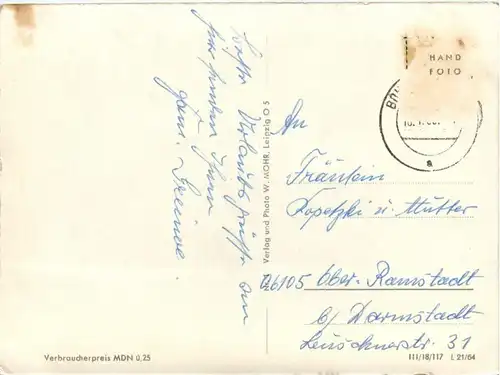 Beste Urlaubsgrüße an
Sie senden Ihnen
Verlag und Photo W. MOHR, Leipzig O 5
HAND
FOTO
a
An
Fräulein
Kopetzki u. Mutter
D6105 Ober-Ramstadt
b/ Darmstadt
Leuschnerstr. 31
Verbraucherpreis MDN 0,25
III/18/117 L 21/64